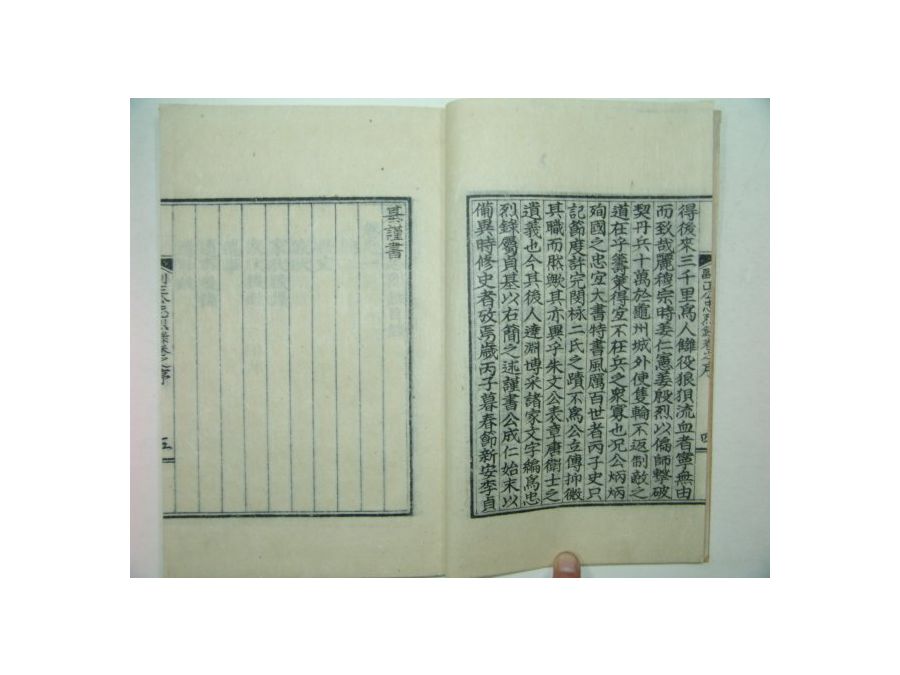 得後來三千里爲人讎役狼狽流血者寧無由
而致哉麗穆宗時姜仁憲姜殷烈以偏師擊破
契丹兵十萬於龜州城外使隻輪不返制敵之
道在乎籌策得宜不在兵之衆寡也况公炳炳
殉國之忠宜大書特書風厲百世者丙子史只
記節度許完閔栐二氏之蹟不爲公立傳抑微
其職而然歟其亦異乎朱文公表章唐衛士之
遺義也今其後人達淵博采諸家文字編爲忠
烈錄屬貞基以右簡之述謹書公成仁始末以
備異時修史者攷焉歲丙子暮春節新安李貞
基謹書
公忠烈錄卷之序
四
公忠烈錄卷之序
五